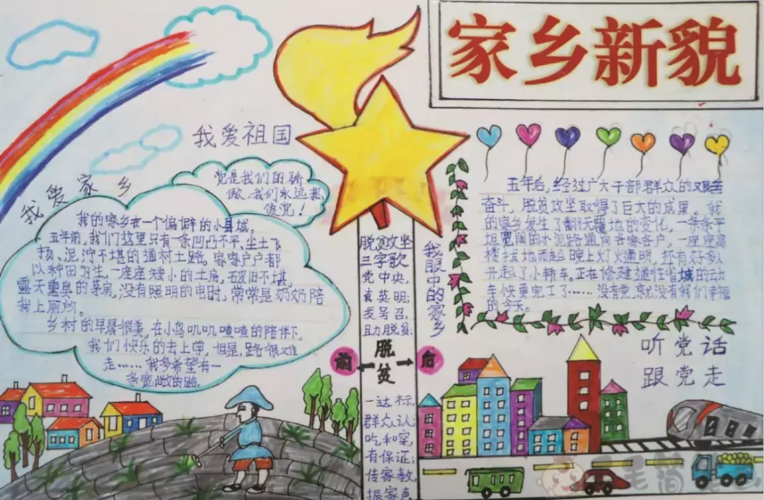 家乡新貌
我爱祖国
我爱家乡
党是我们的骄
傲,我们永远热
爱党!
我的家乡在一个偏僻的小县城,
五年前,我们这里只有一条凹凸不平,尘土飞
扬,泥泞不堪的通村土路,家家户户都
以种田为生,一座座矮小的土房,破旧不堪,
露天恶臭的茅房,没有照明的电时,常常是奶奶陪
我上厕所.
乡村的早晨很美,在小鸟叽叽喳喳的陪伴下,
我们快乐的去上学,但是,路很难
走……我多希望有一
条宽敞的路.
脱贫攻坚
三字歌
党中央,
真英明;
发号召,
助脱贫;
前 脱贫 后
一达标,
群众认;
吃和穿,
有保证;
传家教,
振家声
我眼中的家乡
五年后,经过广大干部群众的艰苦
奋斗,脱贫攻坚取得了巨大的成果,我
的家乡发生了翻天覆地的变化,一条条平
坦宽阔的水泥路通向各家各户,一座座高
楼拔地而起,晚上灯火通明,还有好多人
开起了小轿车,正在修建通往县城的动
车,快要完工了……没有党,就没有我们幸福
的今天。
听党话
跟党走